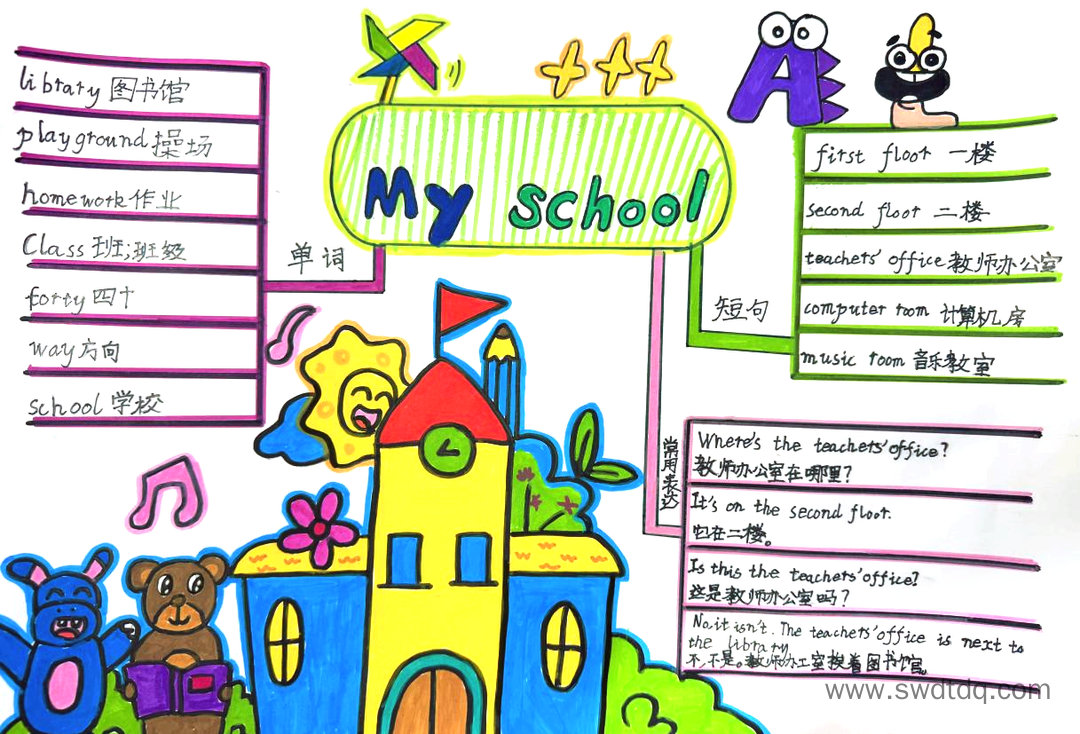 My school
单词
library 图书馆
playground 操场
homework 作业
Class 班;班级
forty 四十
way 方向
school 学校
短句
first floor 一楼
second floor 二楼
teachers' office 教师办公室
computer room 计算机房
music room 音乐教室
常用表达
Where's the teachers' office?
教师办公室在哪里?
It's on the second floor.
它在二楼。
Is this the teachers' office?
这是教师办公室吗?
No, it isn't. The teachers' office is next to
the library.
不,不是。教师办工室挨着图书馆。
www.swdtdq.com